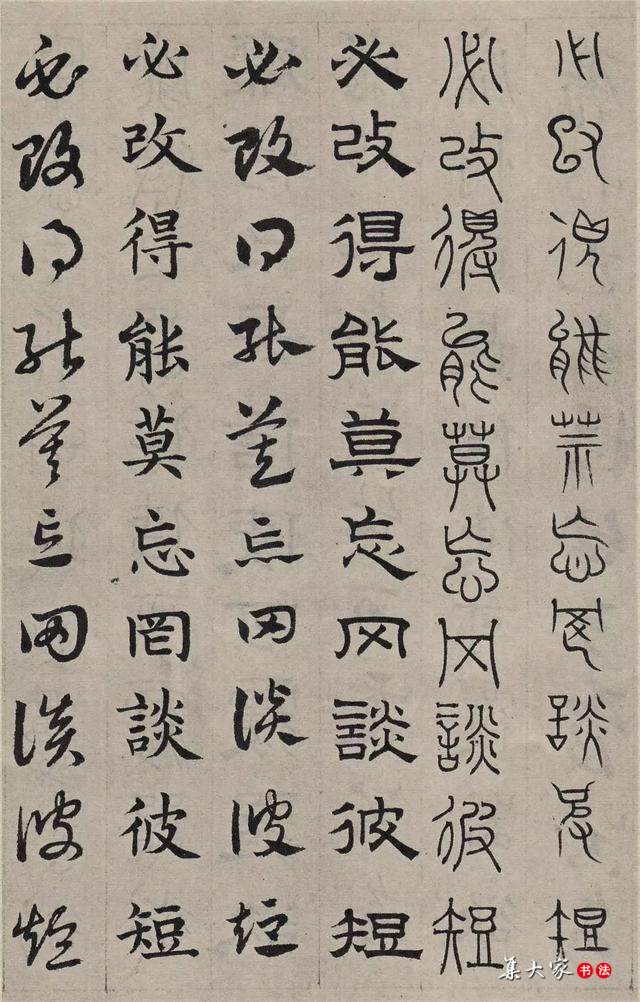 必改得能莫忘罔談彼短
必改得能莫忘罔談彼短
必改得能莫忘罔談彼短
必改得能莫忘罔談彼短
必改得能莫忘罔談彼短
必改得能莫忘罔談彼短
集大家书法